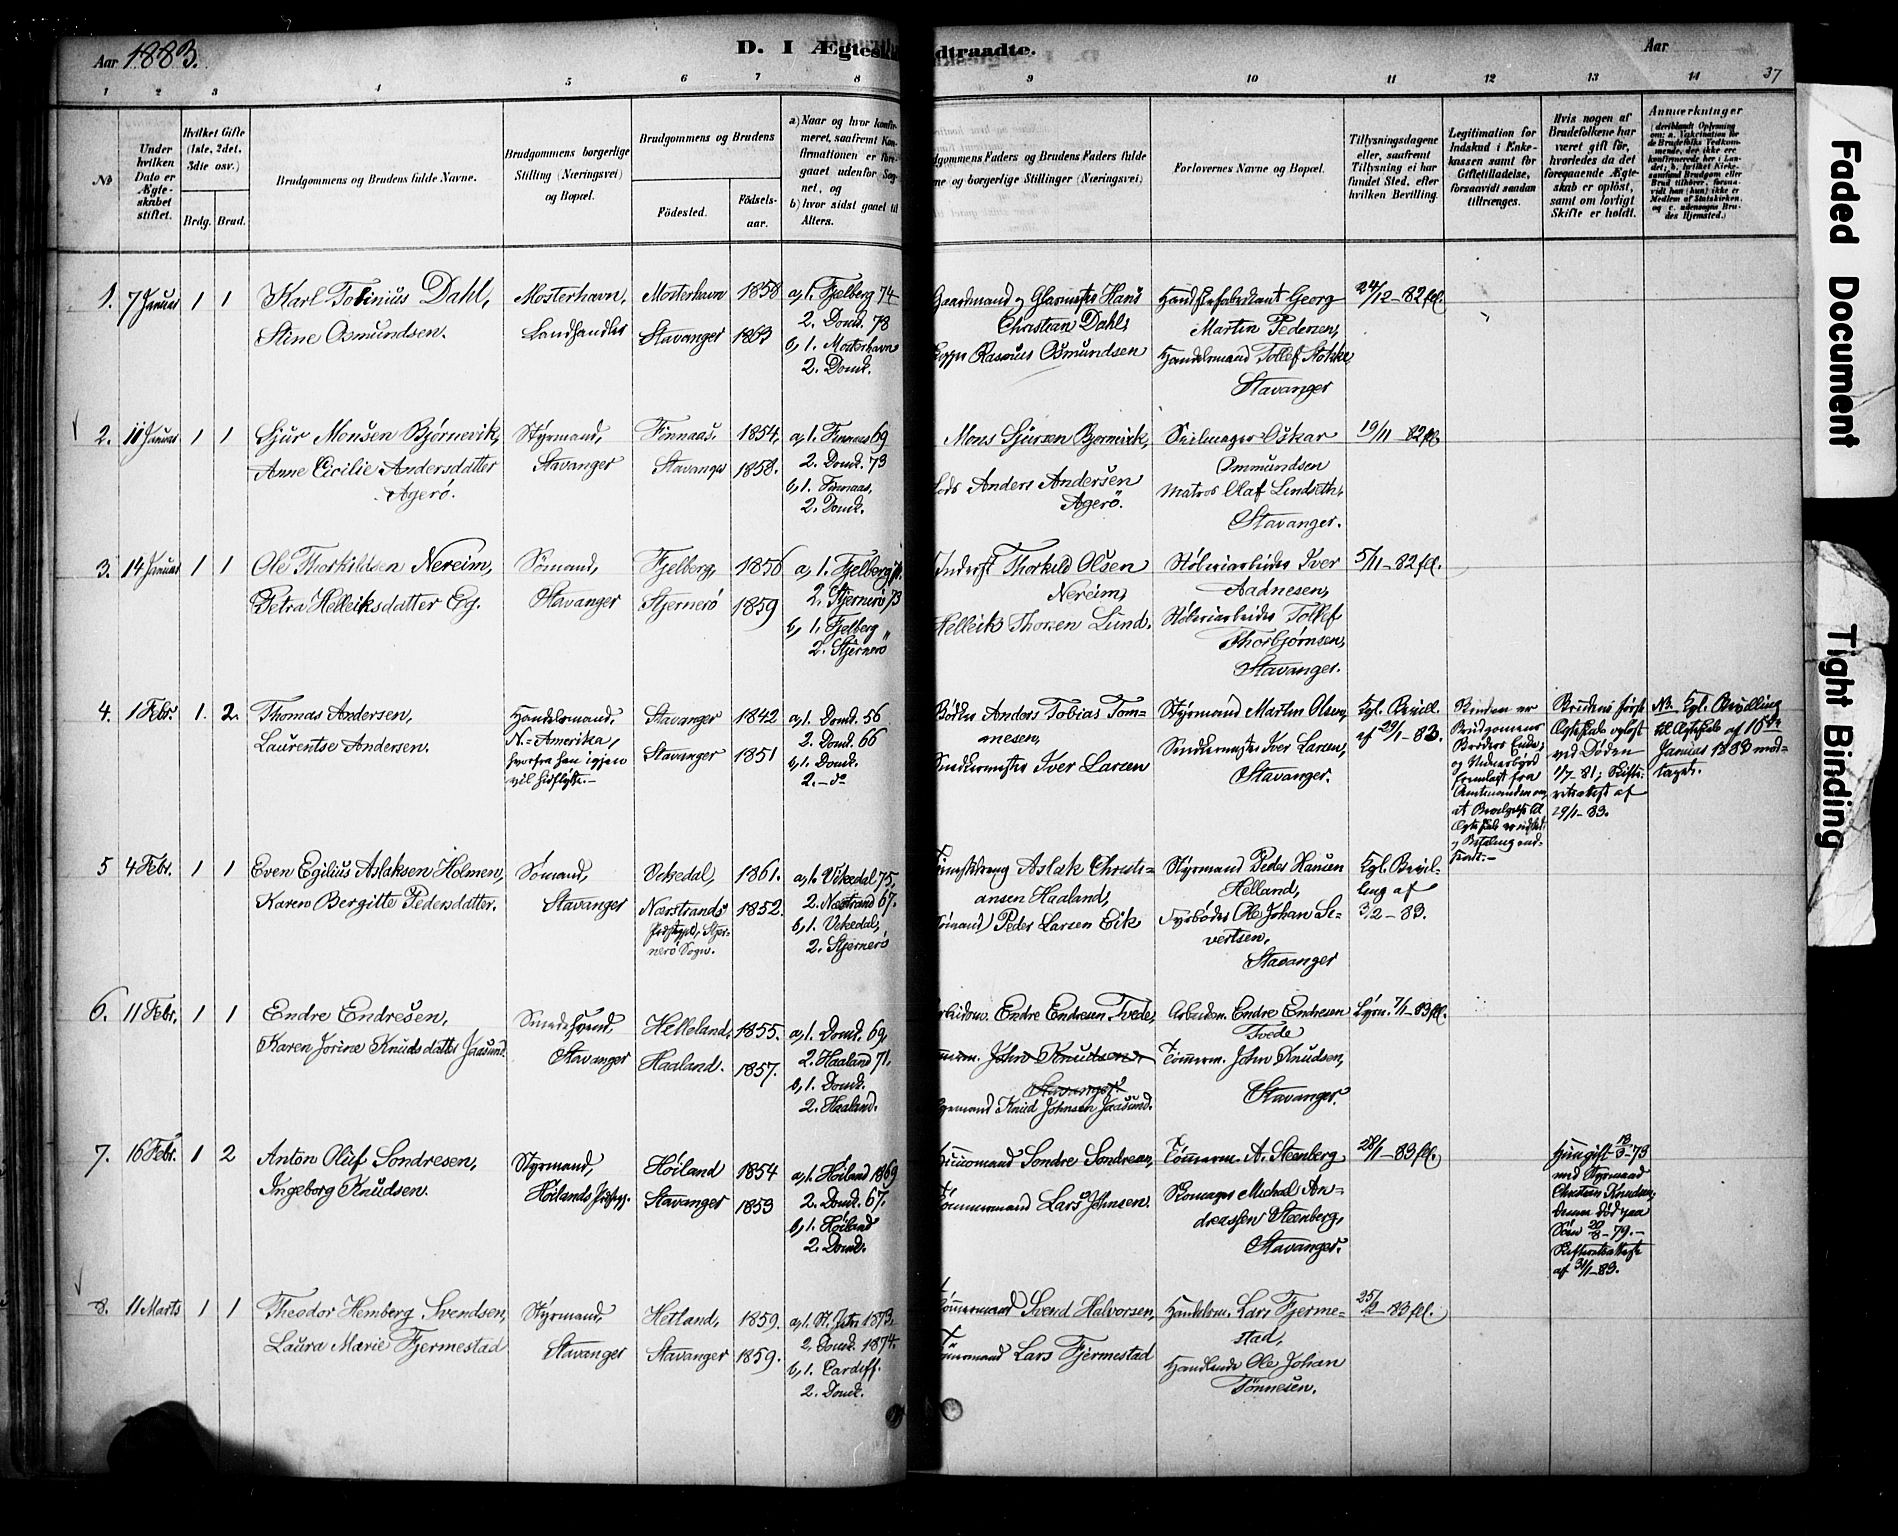 Aar 1883.
D. I Ægtesk
dtraadte.
Aar
37
1 2 3 4 5 6 7 8 9 10 11 12 13 14
No
Under hvilken Dato er Ægteskabet stiftet.
Hvilket Gifte (1ste, 2det, 3die osv.)
Brdg. Brud.
Brudgommens og Brudens fulde Navne.
Brudgommens borgerlige Stilling (Næringsvei) og Bopæl.
Brudgommens og Brudens
Fødested.
Fødselsaar.
a) Naar og hvor konfirmeret, saafremt Konfirmationen er foregaaet udenfor Sognet, og
b) hvor sidst gaaet til Alters.
dgommens Faders og Brudens Faders fulde
ne og borgerlige Stillinger (Næringsvei)
Forlovernes Navne og Bopæl.
Tillysningsdagene eller, saafremt Tillysning ei har fundet Sted, efter hvilken Bevilling.
Legitimation for Indskud i Enkekassen samt for Giftetilladelse, forsaavidt saadan tiltrænges.
Hvis nogen af Brudefolkene har været gift før, hvorledes da det foregaaende Ægteskab er opløst, samt om lovligt Skifte er holdt.
Anmærkninger
1. 7 Januar 1 1
Karl Tobinius Dahl,
Stine Osmundsen.
Mosterhavn,
Landhandler
Mosterhavn 1858
Stavanger 1863
a, 1. Fjelberg 74
2. Domk. 78
b, 1. Mosterhavn
2. Domk.
Gaardmand og Glarmester Hans
Christian Dahl,
Rasmus Osmundsen
Georg
Martin Pedersen,
Handelsmand Tollef Stokke,
Stavanger
24/12-82 fl.
2. 11 Januar 1 1
Sjur Monsen Bjørnevik,
Anne Cicilie Andersdatter
Agerø.
Styrmand,
Stavanger
Finnaas, 1854,
Stavanger 1858.
a, 1. Finnaas 69
2. Domk. 73
b, 1. Finnaas,
2. Domk.
Mons Sjursen Bjørnevik,
Lods Anders Andersen
Agerø.
Seilmager Oskar
Ommundsen
Matros Olaf Lindseth,
Stavanger.
19/11-82 fl.
3. 14 Januar 1 1
Ole Thorkildsen Nereim,
Petra Helleiksdatter Eg.
Sømand,
Stavanger
Fjelberg, 1856
Stjernerø 1859
a, 1. Fjelberg
2. Stjernerø 73
b, 1. Fjelberg
2. Stjernerø
Inderst Thorkild Olsen
Nereim,
Helleik Thorsen Lund.
Støberiarbeider Iver
Aadnesen,
Støberiarbeider Tollef
Thorbjørnsen,
Stavanger.
5/11-82 fl.
4. 1 Febr. 1. 2.
Thomas Andersen,
Laurentse Andersen.
Handelsmand,
N.-Amerika,
hvorfra han igjen
vil hidflytte.-
Stavanger 1842
Stavanger 1851
a, 1. Domk. 56
2. Domk. 66
b, 1. Domk.
2. - do
Bødker Anders Tobias Tom-
mesen,
Snedkermester Iver Larsen
Styrmand Martin Olsen,
Snedkermester Iver Larsen,
Stavanger.
Kgl. Bevill.
af 29/1-83.
Bruden er
Brudgomens
Broders Enke,
Brudens første
Ægteskab opløst
ved Døden
1/7-81; Skifte-
retsattest af
29/1-83.
NB. Kgl. Bevilling
til Ægteskab af 16de
Januar 1883 mod-
taget.
5 4 Febr. 1 1
Even Egilius Aslaksen Holmen,
Karen Bergitte Pedersdatter.
Sømand,
Stavanger
Vikedal, 1861.
Nærstrands 1852.
Præstegjd, Stjer-
nerø Sogn.
a, 1. Vikedal 75,
2. Nærstrand 67.
b, 1. Vikedal,
2. Stjernerø
Aslak Christi-
ansen Haaland,
Sømand Peder Larsen Eik
Styrmand Peder Hansen
Helland,
Fyrbøder Ole Johan Si-
vertsen,
Stavanger
Kgl. Bevil-
ling af
3/2-83.
6. 11 Febr. 1 1
Endre Endresen,
Karen Jorine Knudsdatter Jaasund.
Smedesvend,
Stavanger
Helleland, 1855.
Haaland. 1857.
a, 1. Domk. 69,
2. Haaland 71.
b, 1. Domk.
2. Haaland.
Arbeidsm. Endre Endresen Tvede,
Tømmerm. John Knudsen,
Stavanger
Knud Johnsen Jaasund.
Arbeidsm. Endre Endresen
Tvede
Tømmerm. John Knudsen,
Stavanger.
Lysn. 7/1-83 fl.
7. 16 Febr. 1 2
Anton Oluf Sondresen,
Ingeborg Knudsen.
Styrmand,
Høilands Prstgj.
Høiland 1854
Stavanger 1853
a, 1. Høiland 1869
2. Domk. 67.
b, 1. Høiland
2. Domk.
Sondre Sondresen,
Tømmermand Lars Johnsen.
Tømmerm. A. Steenberg
Skomager Michal An-
dreassen Steenberg,
Stavanger.
28/1-83 fl.
Hun gift 18/3-73
med Styrmand
Christian Knudsen,
denne død paa
Søen 20/8-79.-
Skifteretsattest
af 31/1-83.
8. 11 Marts 1 1
Theodor Hemberg Svendsen,
Laura Marie Fjermestad
Styrmand,
Stavanger
Hetland, 1859.
Stavanger 1859.
a, 1. St. Petri 1873.
2, Domk. 1874.
b, 1. Cardiff.
2. Domk.
Tømmermand Svend Halvorsen,
Tømmermand Lars Fjermestad
Handelsm. Lars Fjerme-
stad,
Handlende Ole Johan
Tønnesen.
25/2-83 fl.
Faded Document
Tight Binding